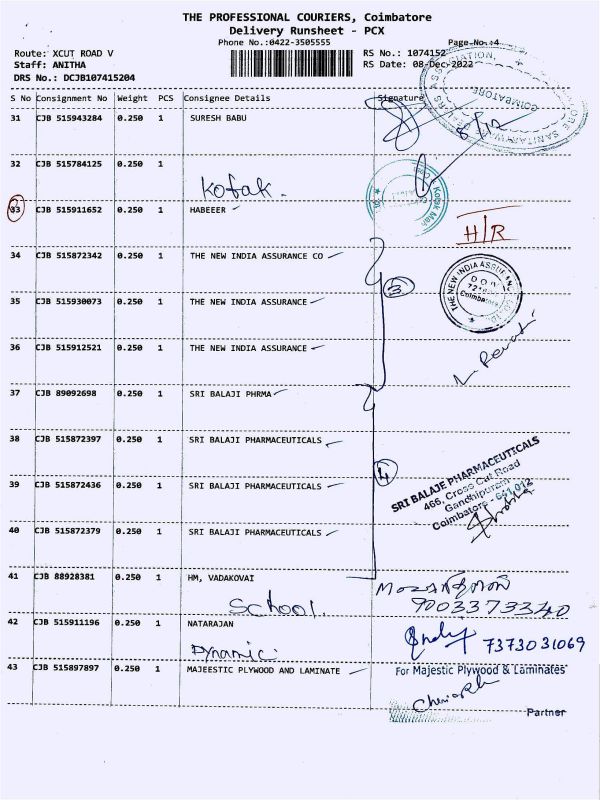 THE PROFESSIONAL COURIERS, Coimbatore
Delivery Runsheet - PCX
Phone No.:0422-3505555
Page No.:4
Route: XCUT ROAD V
RS No.: 1074152
Staff: ANITHA
RS Date: 08-Dec-2022
DRS No.: DCJB107415204
S No Consignment No Weight PCS Consignee Details Signature
31 CJB 515943284 0.250 1 SURESH BABU
8/12
COIMBATORE
32 CJB 515784125 0.250 1
Kotak.
Kotak Mah
33 CJB 515911652 0.250 1 HABEEER
H/R
34 CJB 515872342 0.250 1 THE NEW INDIA ASSURANCE CO
3
THE NEW INDIA ASSURANCE
Coimbatore
35 CJB 515930073 0.250 1 THE NEW INDIA ASSURANCE
36 CJB 515912521 0.250 1 THE NEW INDIA ASSURANCE
37 CJB 89092698 0.250 1 SRI BALAJI PHRMA
38 CJB 515872397 0.250 1 SRI BALAJI PHARMACEUTICALS
4
SRI BALAJE PHARMACEUTICALS
466, Cross Cut Road
Gandhipuram
Coimbatore - 641 012
39 CJB 515872436 0.250 1 SRI BALAJI PHARMACEUTICALS
40 CJB 515872379 0.250 1 SRI BALAJI PHARMACEUTICALS
41 CJB 88928381 0.250 1 HM, VADAKOVAI
School.
9003373340
42 CJB 515911196 0.250 1 NATARAJAN
Dynamic
7373031069
43 CJB 515897897 0.250 1 MAJEESTIC PLYWOOD AND LAMINATE
For Majestic Plywood & Laminates
Partner